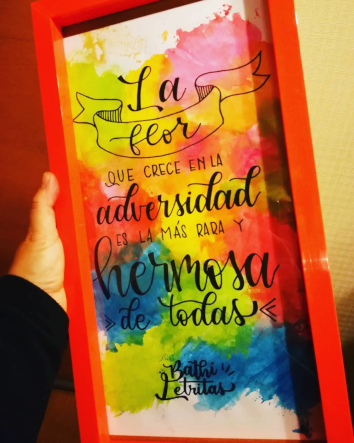 La
flor
QUE CRECE EN LA
adversidad
ES LA MÁS RARA Y
hermosa
de todas
Bathi
Letritas